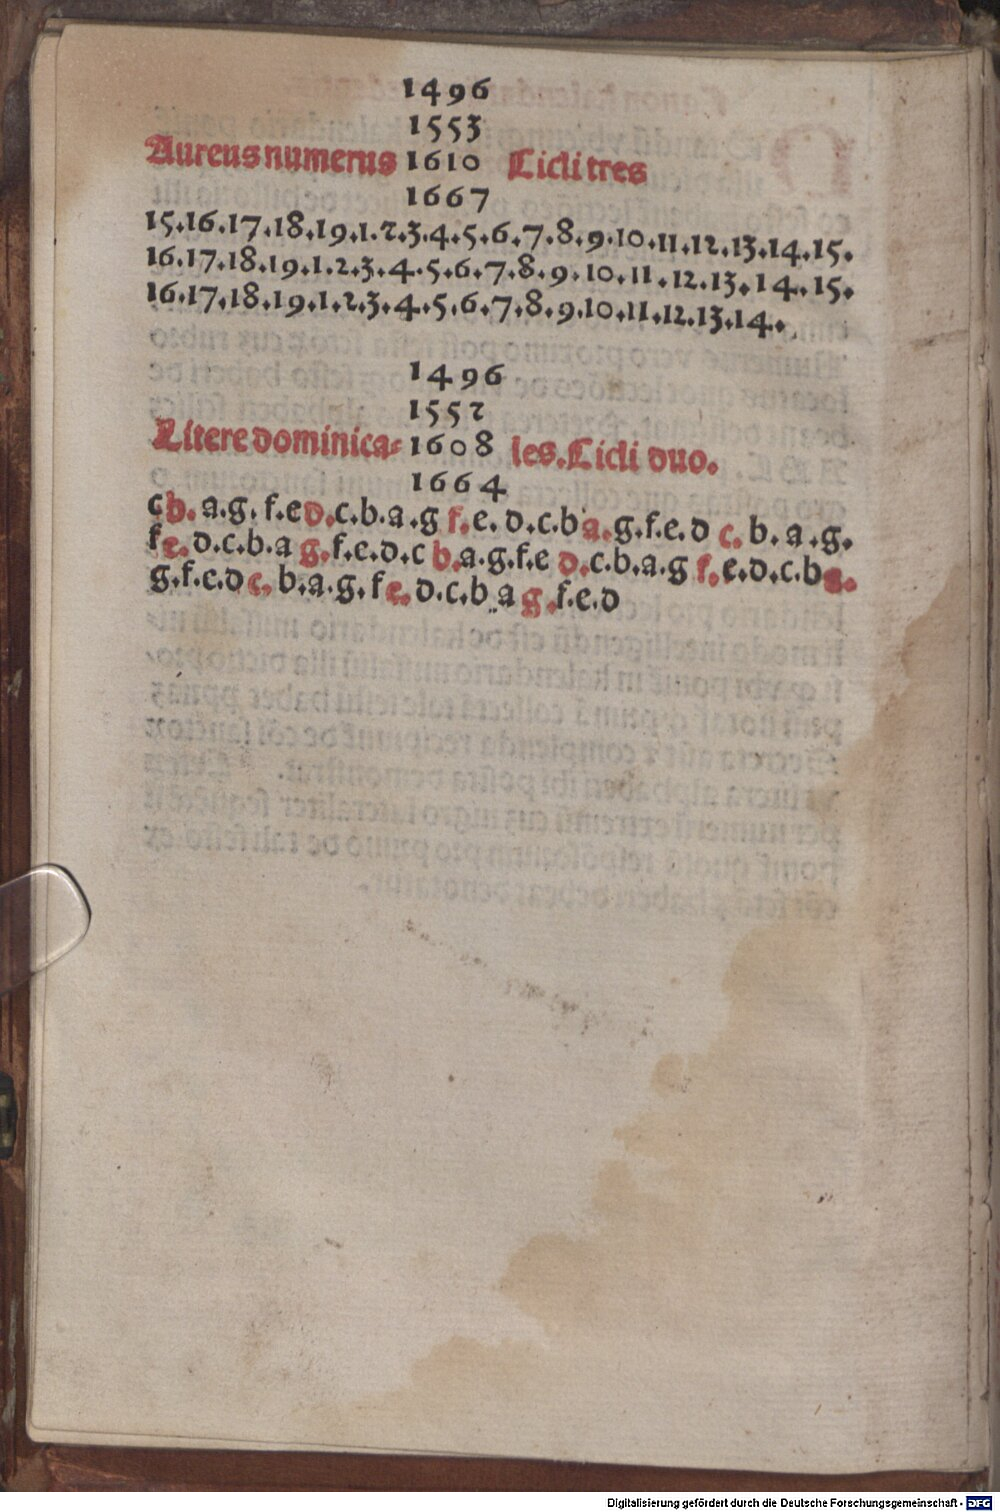 1496
1553
Aureus numerus 1610 Cicli tres
1667
15.16.17.18.19.1.2.3.4.5.6.7.8.9.10.11.12.13.14.15.
16.17.18.19.1.2.3.4.5.6.7.8.9.10.11.12.13.14.15.
16.17.18.19.1.2.3.4.5.6.7.8.9.10.11.12.13.14.
1496
1552
Litere dominica= 1608 les. Cicli duo.
1664
c b. a.g. f.e d.c.b.a.g f.e. d.c.b a.g.f.e.d c. b. a.g.
f e.d.c.b.a g.f.e.d.c b.a.g.f.e d.c.b.a.g f.e.d.c.b a.
g.f.e.d c. b.a.g.f e.d.c.b a g.f.e.d
Digitalisierung gefördert durch die Deutsche Forschungsgemeinschaft - DFG